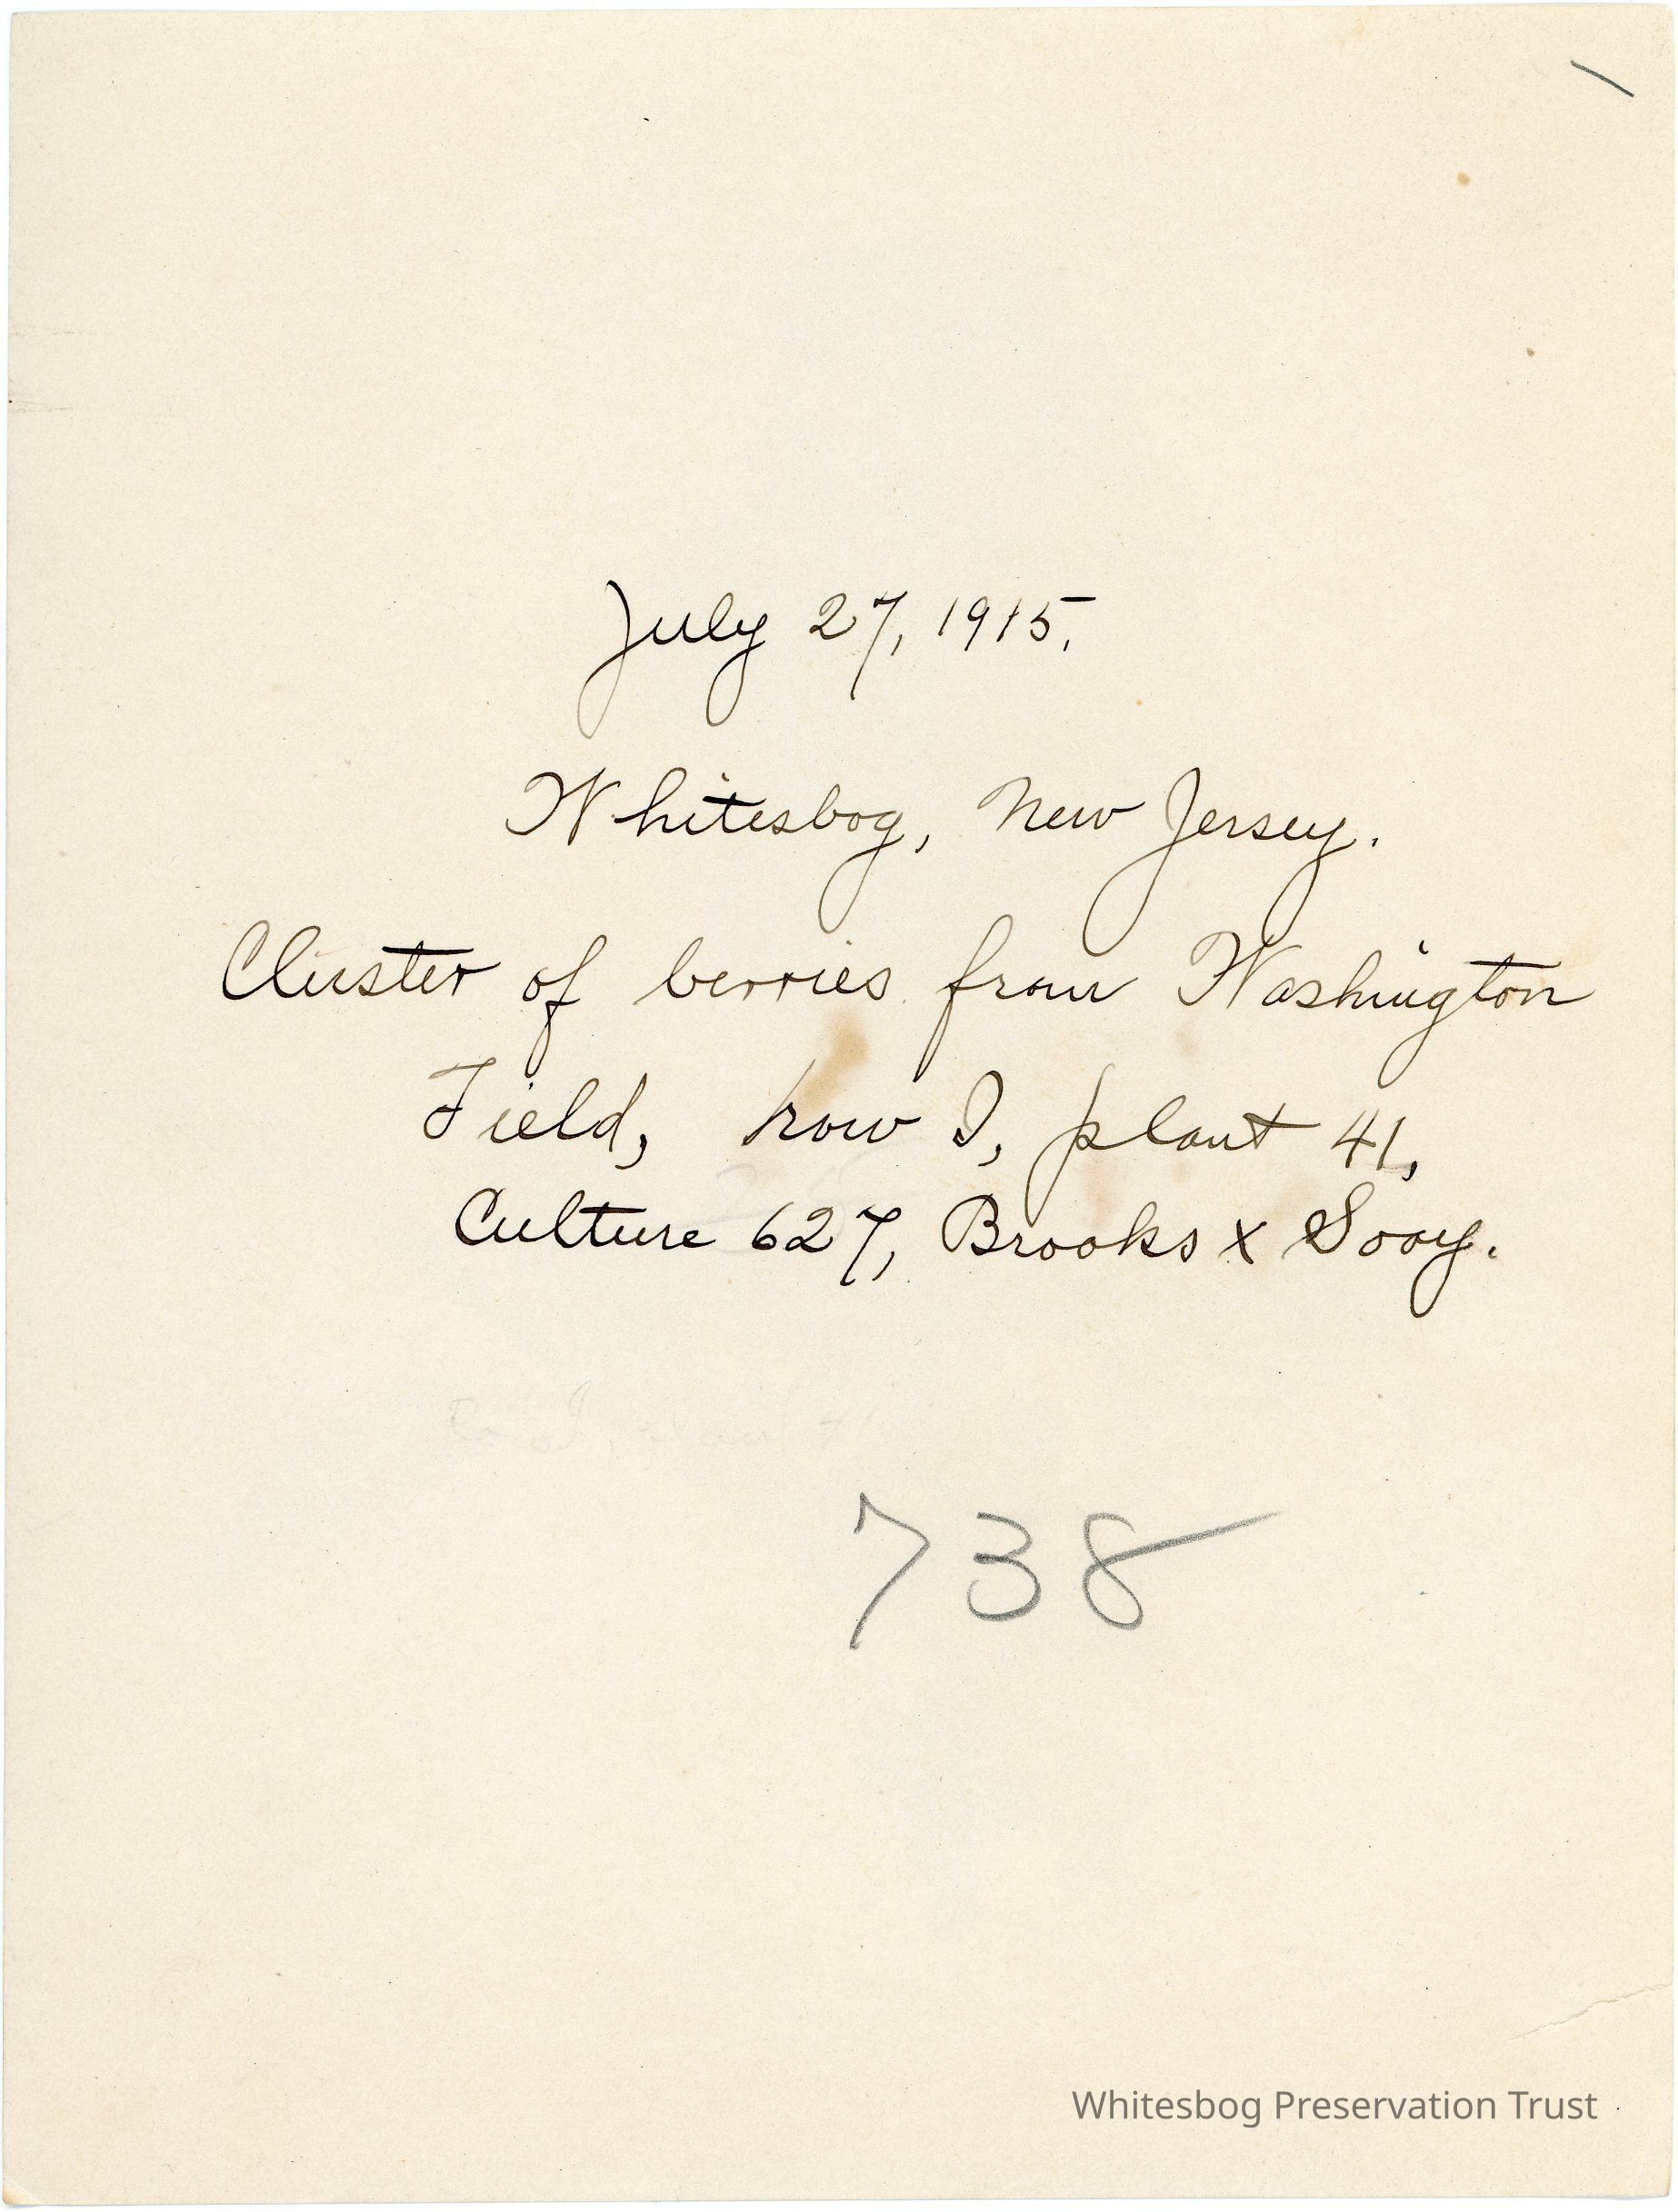 July 27, 1915.
Whitesbog, New Jersey.
Cluster of berries from Washington
Field, row I, plant 41,
Culture 627, Brooks x Sooy.
738
Whitesbog Preservation Trust